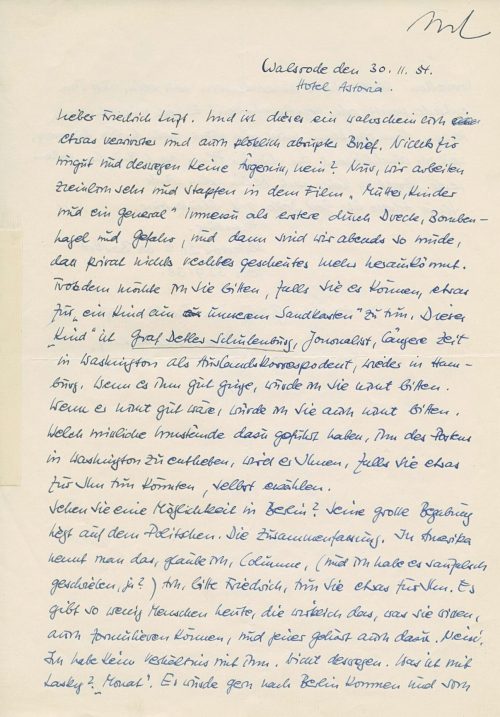 Walsrode den 30. 11. 54.
Hotel Astoria.
Lieber Friedrich Luft. Und ist dieses ein wahrscheinlich
etwas verwirrter und auch plötzlich abrupter Brief. Nichts für
ungut und deswegen keine Ärgernis, nein? Nur, wir arbeiten
ziemlich sehr und stapfen in dem Film „Mütter, Kinder
und ein General" immerzu als erstere durch Dreck, Bomben-
hagel und Gefahr, und dann sind wir abends so müde,
dass privat nichts rechtes gescheutes mehr herauskommt.
Trotzdem möchte ich Sie bitten, falls Sie es können, etwas
für „ein Kind aus unserem Sandkasten" zu tun. Dieses
„Kind" ist Graf Detlev Schulenburg, Journalist, längere Zeit
in Washington als Auslandskorrespodent, wieder in Ham-
burg. Wenn es ihm gut ginge, würde ich Sie nicht bitten.
Wenn er nicht gut wäre, würde ich Sie auch nicht bitten.
Welch missliche Umstände dazu geführt haben, ihn des Postens
in Washington zu entheben, wird er Ihnen, falls Sie etwas
für Ihn tun könnten, selbst erzählen.
Sehen Sie eine Möglichkeit in Berlin? Seine grosse Begabung
liegt auf dem Politschen. Die Zusammenfassung. In Amerika
nennt man das, glaube ich, Columne, (und ich habe es saufalsch
geschrieben, ja?) Ach, bitte Friedrich, tun Sie etwas für Ihn. Es
gibt so wenig Menschen heute, die wirklich das, was sie wissen,
auch formulieren können, und jener gehört auch dazu. Nein,
Ich habe kein Verhältnis mit ihm. Nicht deswegen. Was ist mit
Lasky? „Monat". Er würde gern nach Berlin kommen und sich